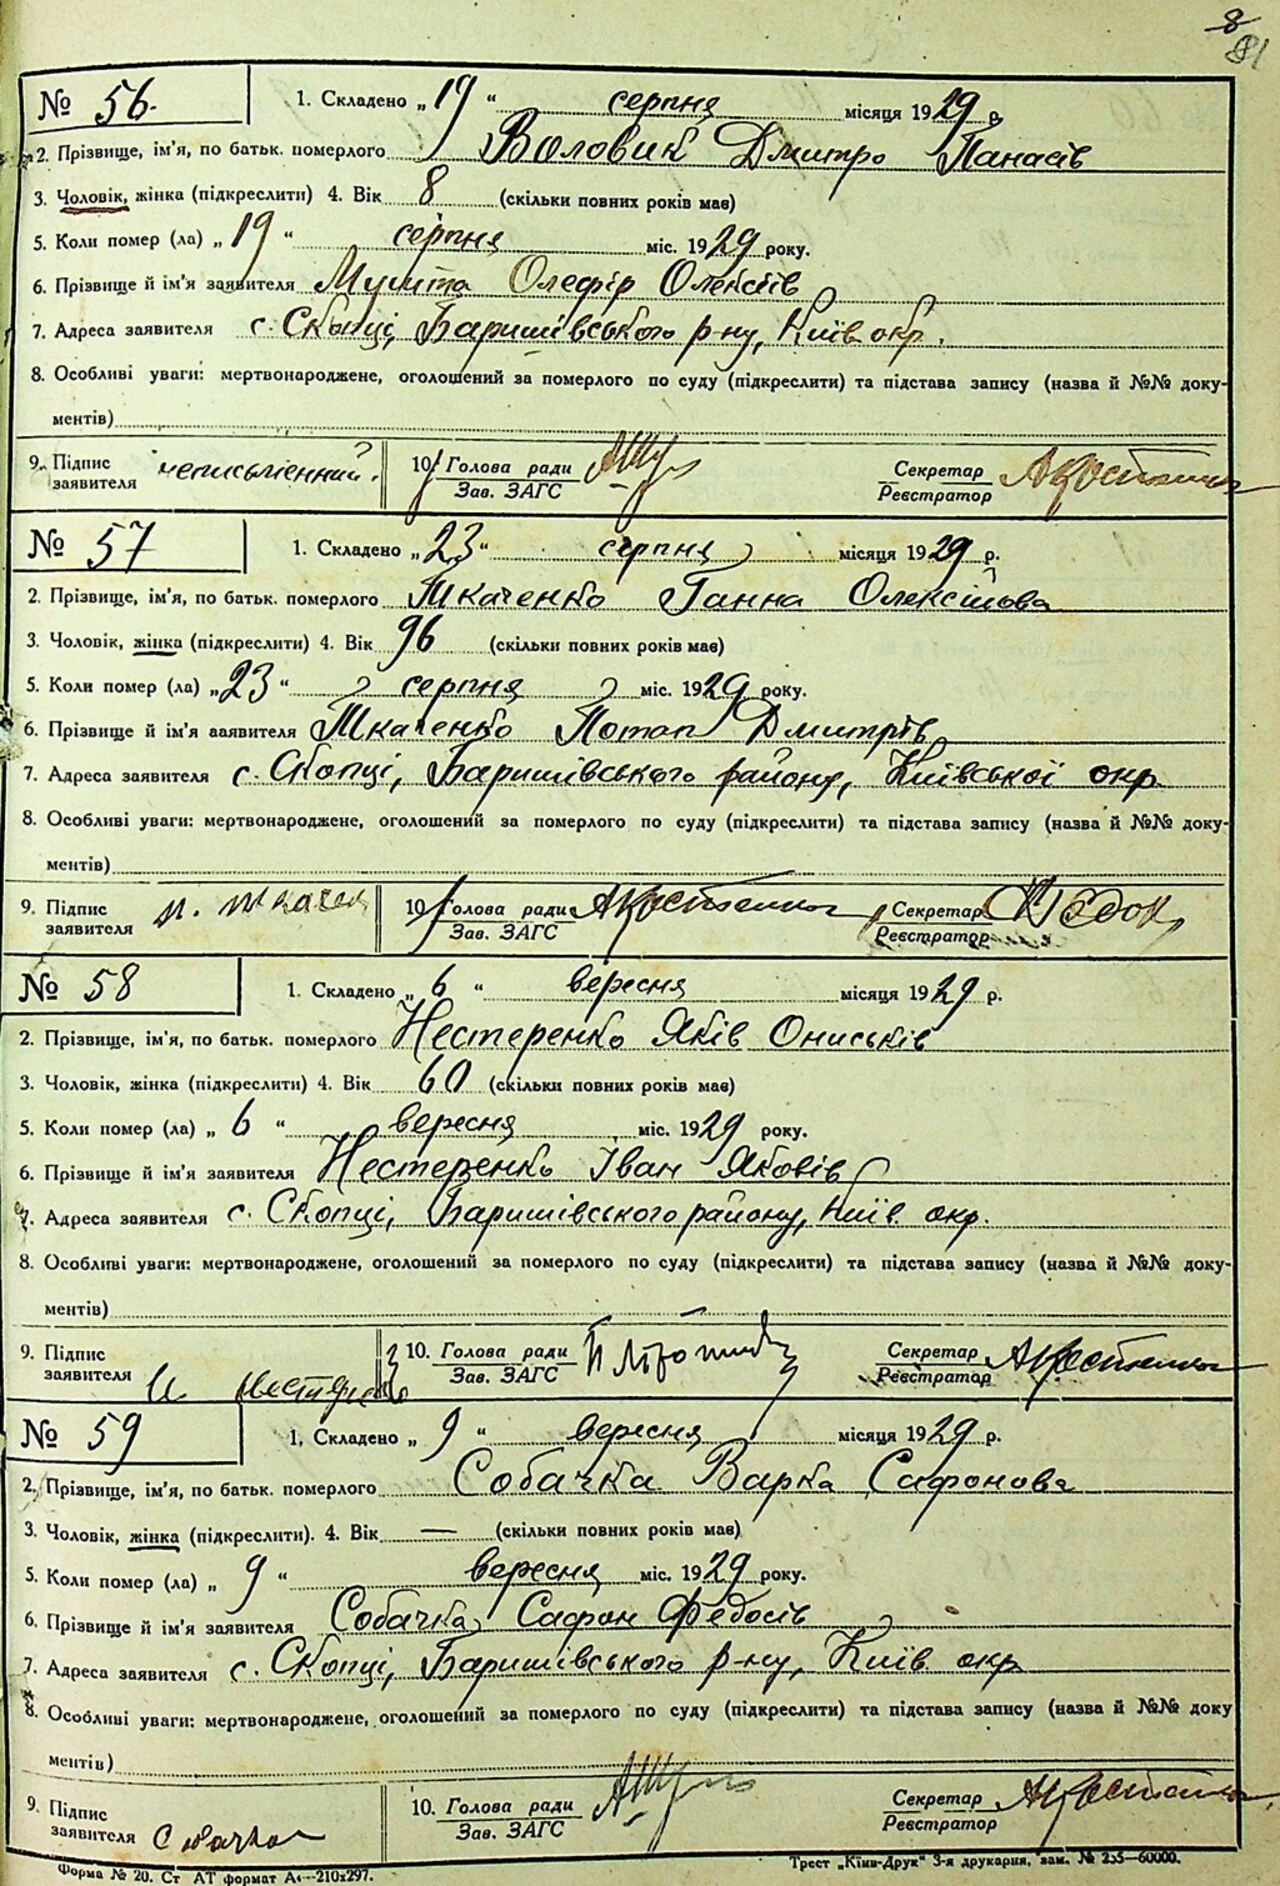 8
81
№ 56. 1. Складено „19“ серпня місяця 1929 р.
2. Прізвище, ім'я, по батьк. померлого Воловик Дмитро Панасів
3. Чоловік, жінка (підкреслити) 4. Вік 8 (скільки повних років має)
5. Коли помер (ла) „19“ серпня міс. 1929 року.
6. Прізвище й ім'я заявителя Олефір Олексіїв
7. Адреса заявителя с. Скопці, Баришівського р-ну, Київ. окр.
8. Особливі уваги: мертвонароджене, оголошений за померлого по суду (підкреслити) та підстава запису (назва й №№ доку-
ментів)
9. Підпис заявителя неписьменний. 10. Голова ради Секретар
Зав. ЗАГС Реєстратор
№ 57 1. Складено „23“ серпня місяця 1929 р.
2. Прізвище, ім'я, по батьк. померлого Ткаченко Ганна Олексіїова
3. Чоловік, жінка (підкреслити) 4. Вік 96 (скільки повних років має)
5. Коли помер (ла) „23“ серпня міс. 1929 року.
6. Прізвище й ім'я заявителя Ткаченко Потап Дмитрів
7. Адреса заявителя с. Скопці, Баришівського району, Київської окр.
8. Особливі уваги: мертвонароджене, оголошений за померлого по суду (підкреслити) та підстава запису (назва й №№ доку-
ментів)
9. Підпис заявителя 10. Голова ради Секретар
Зав. ЗАГС Реєстратор
№ 58 1. Складено „6“ вересня місяця 1929 р.
2. Прізвище, ім'я, по батьк. померлого Нестеренко Яків Ониськів
3. Чоловік, жінка (підкреслити) 4. Вік 60 (скільки повних років має)
5. Коли помер (ла) „6“ вересня міс. 1929 року.
6. Прізвище й ім'я заявителя Нестеренко Іван Яковів
7. Адреса заявителя с. Скопці, Баришівського району, Київ. окр.
8. Особливі уваги: мертвонароджене, оголошений за померлого по суду (підкреслити) та підстава запису (назва й №№ доку-
ментів)
9. Підпис заявителя 10. Голова ради Секретар
Зав. ЗАГС Реєстратор
№ 59 1. Складено „9“ вересня місяця 1929 р.
2. Прізвище, ім'я, по батьк. померлого Собачка Варка Сафонова
3. Чоловік, жінка (підкреслити). 4. Вік — (скільки повних років має)
5. Коли помер (ла) „9“ вересня міс. 1929 року.
6. Прізвище й ім'я заявителя Собачка Сафон Федосів
7. Адреса заявителя с. Скопці, Баришівського р-ну, Київ. окр
8. Особливі уваги: мертвонароджене, оголошений за померлого по суду (підкреслити) та підстава запису (назва й №№ доку
ментів)
9. Підпис заявителя Собачка 10. Голова ради Секретар
Зав. ЗАГС Реєстратор
Форма № 20. Ст АТ формат А4—210х297. Трест „Київ-Друк“ 3-я друкарня, зам. № 255—60000.